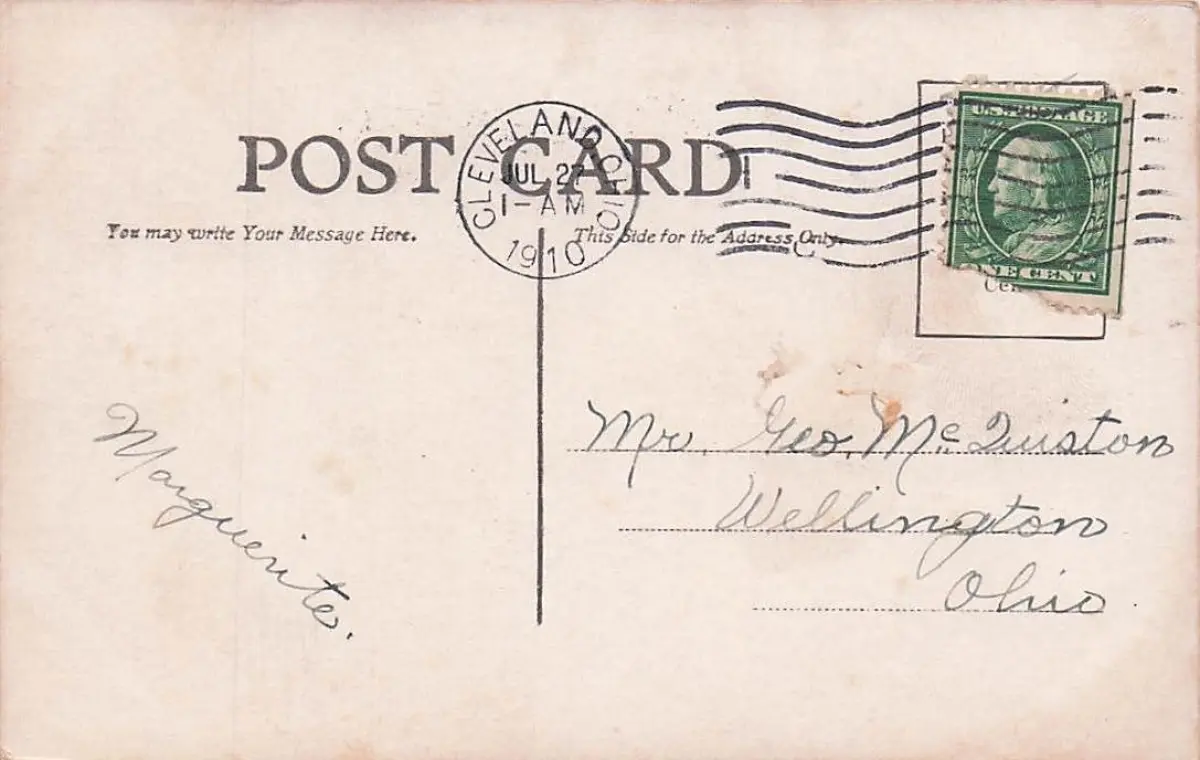 POST CARD
CLEVELAND, OHIO
JUL 27
1-AM
1910
U.S. POSTAGE
ONE CENT
You may write Your Message Here.
This Side for the Address Only.
Marguerite.
Mr. Geo. Mc Quiston
Wellington
Ohio